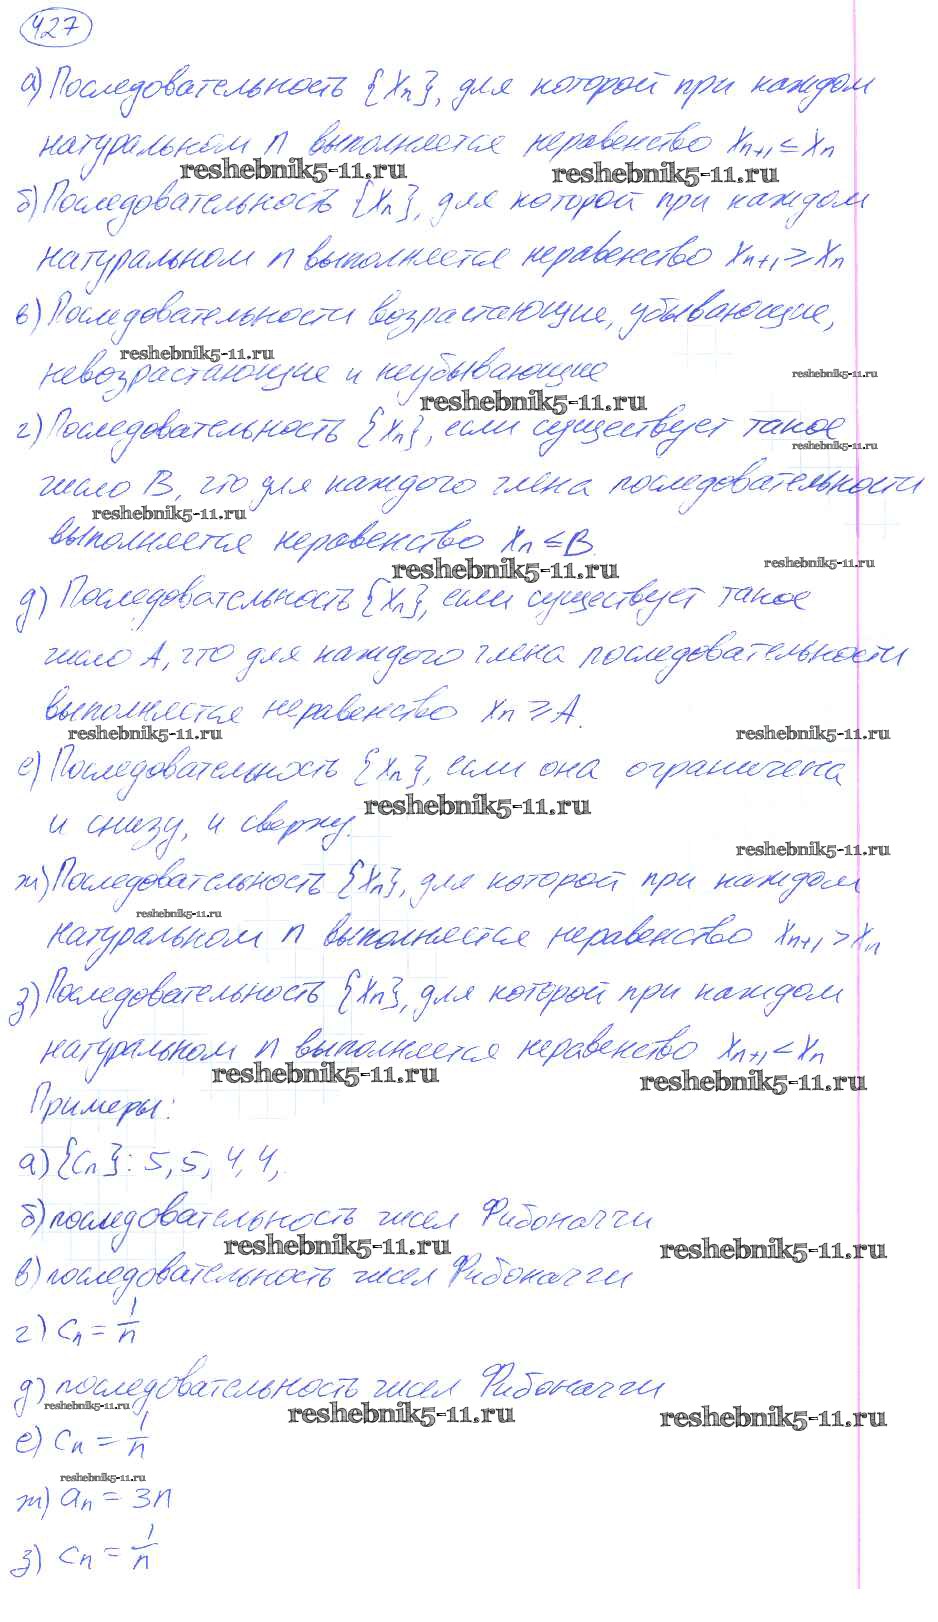 427
а) Последовательность {xₙ}, для которой при каждом
натуральном n выполняется неравенство xₙ₊₁ ≤ xₙ
reshebnik5-11.ru reshebnik5-11.ru
б) Последовательность {xₙ}, для которой при каждом
натуральном n выполняется неравенство xₙ₊₁ ≥ xₙ
в) Последовательности возрастающие, убывающие,
reshebnik5-11.ru
невозрастающие и неубывающие
reshebnik5-11.ru
reshebnik5-11.ru
г) Последовательность {xₙ}, если существует такое
reshebnik5-11.ru
число B, что для каждого члена последовательности
reshebnik5-11.ru
выполняется неравенство xₙ ≤ B.
reshebnik5-11.ru reshebnik5-11.ru
д) Последовательность {xₙ}, если существует такое
число A, что для каждого члена последовательности
выполняется неравенство xₙ ≥ A.
reshebnik5-11.ru reshebnik5-11.ru
е) Последовательность {xₙ}, если она ограничена
reshebnik5-11.ru
и снизу, и сверху.
reshebnik5-11.ru
ж) Последовательность {xₙ}, для которой при каждом
reshebnik5-11.ru
натуральном n выполняется неравенство xₙ₊₁ > xₙ
з) Последовательность {xₙ}, для которой при каждом
натуральном n выполняется неравенство xₙ₊₁ < xₙ
reshebnik5-11.ru reshebnik5-11.ru
Примеры:
а) {cₙ}: 5, 5, 4, 4,
б) последовательность чисел Фибоначчи
reshebnik5-11.ru reshebnik5-11.ru
в) последовательность чисел Фибоначчи
г) cₙ = 1/n
д) последовательность чисел Фибоначчи
reshebnik5-11.ru reshebnik5-11.ru reshebnik5-11.ru
е) cₙ = 1/n
reshebnik5-11.ru
ж) aₙ = 3n
з) cₙ = 1/n